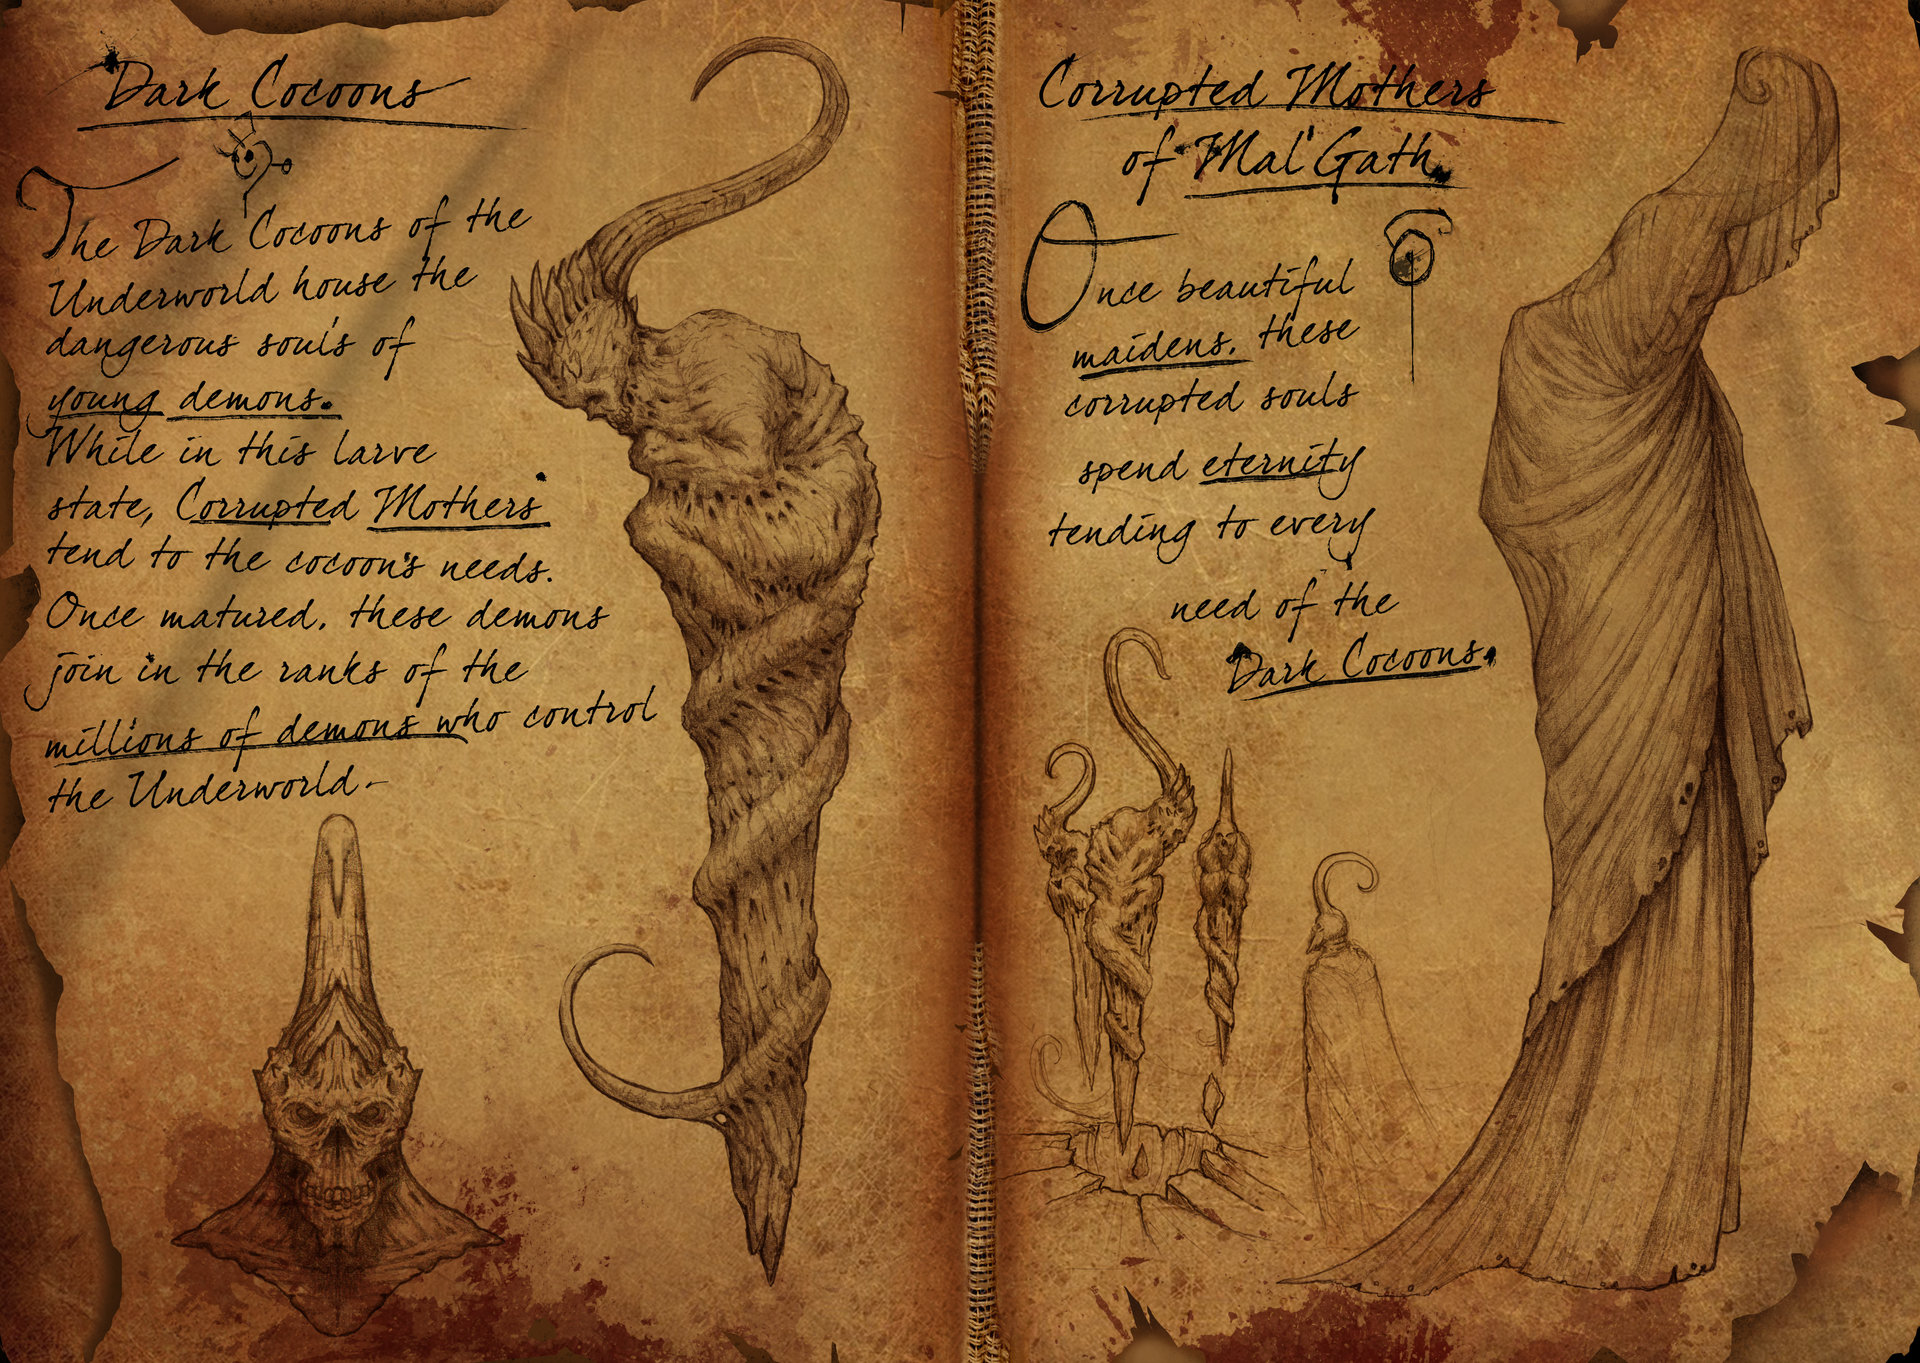 Dark Cocoons
The Dark Cocoons of the
Underworld house the
dangerous soul's of
young demons.
While in this larve
state, Corrupted Mothers
tend to the cocoon's needs.
Once matured, these demons
join in the ranks of the
millions of demons who control
the Underworld-
Corrupted Mothers
of Mal'Gath.
Once beautiful
maidens, these
corrupted souls
spend eternity
tending to every
need of the
Dark Cocoons.